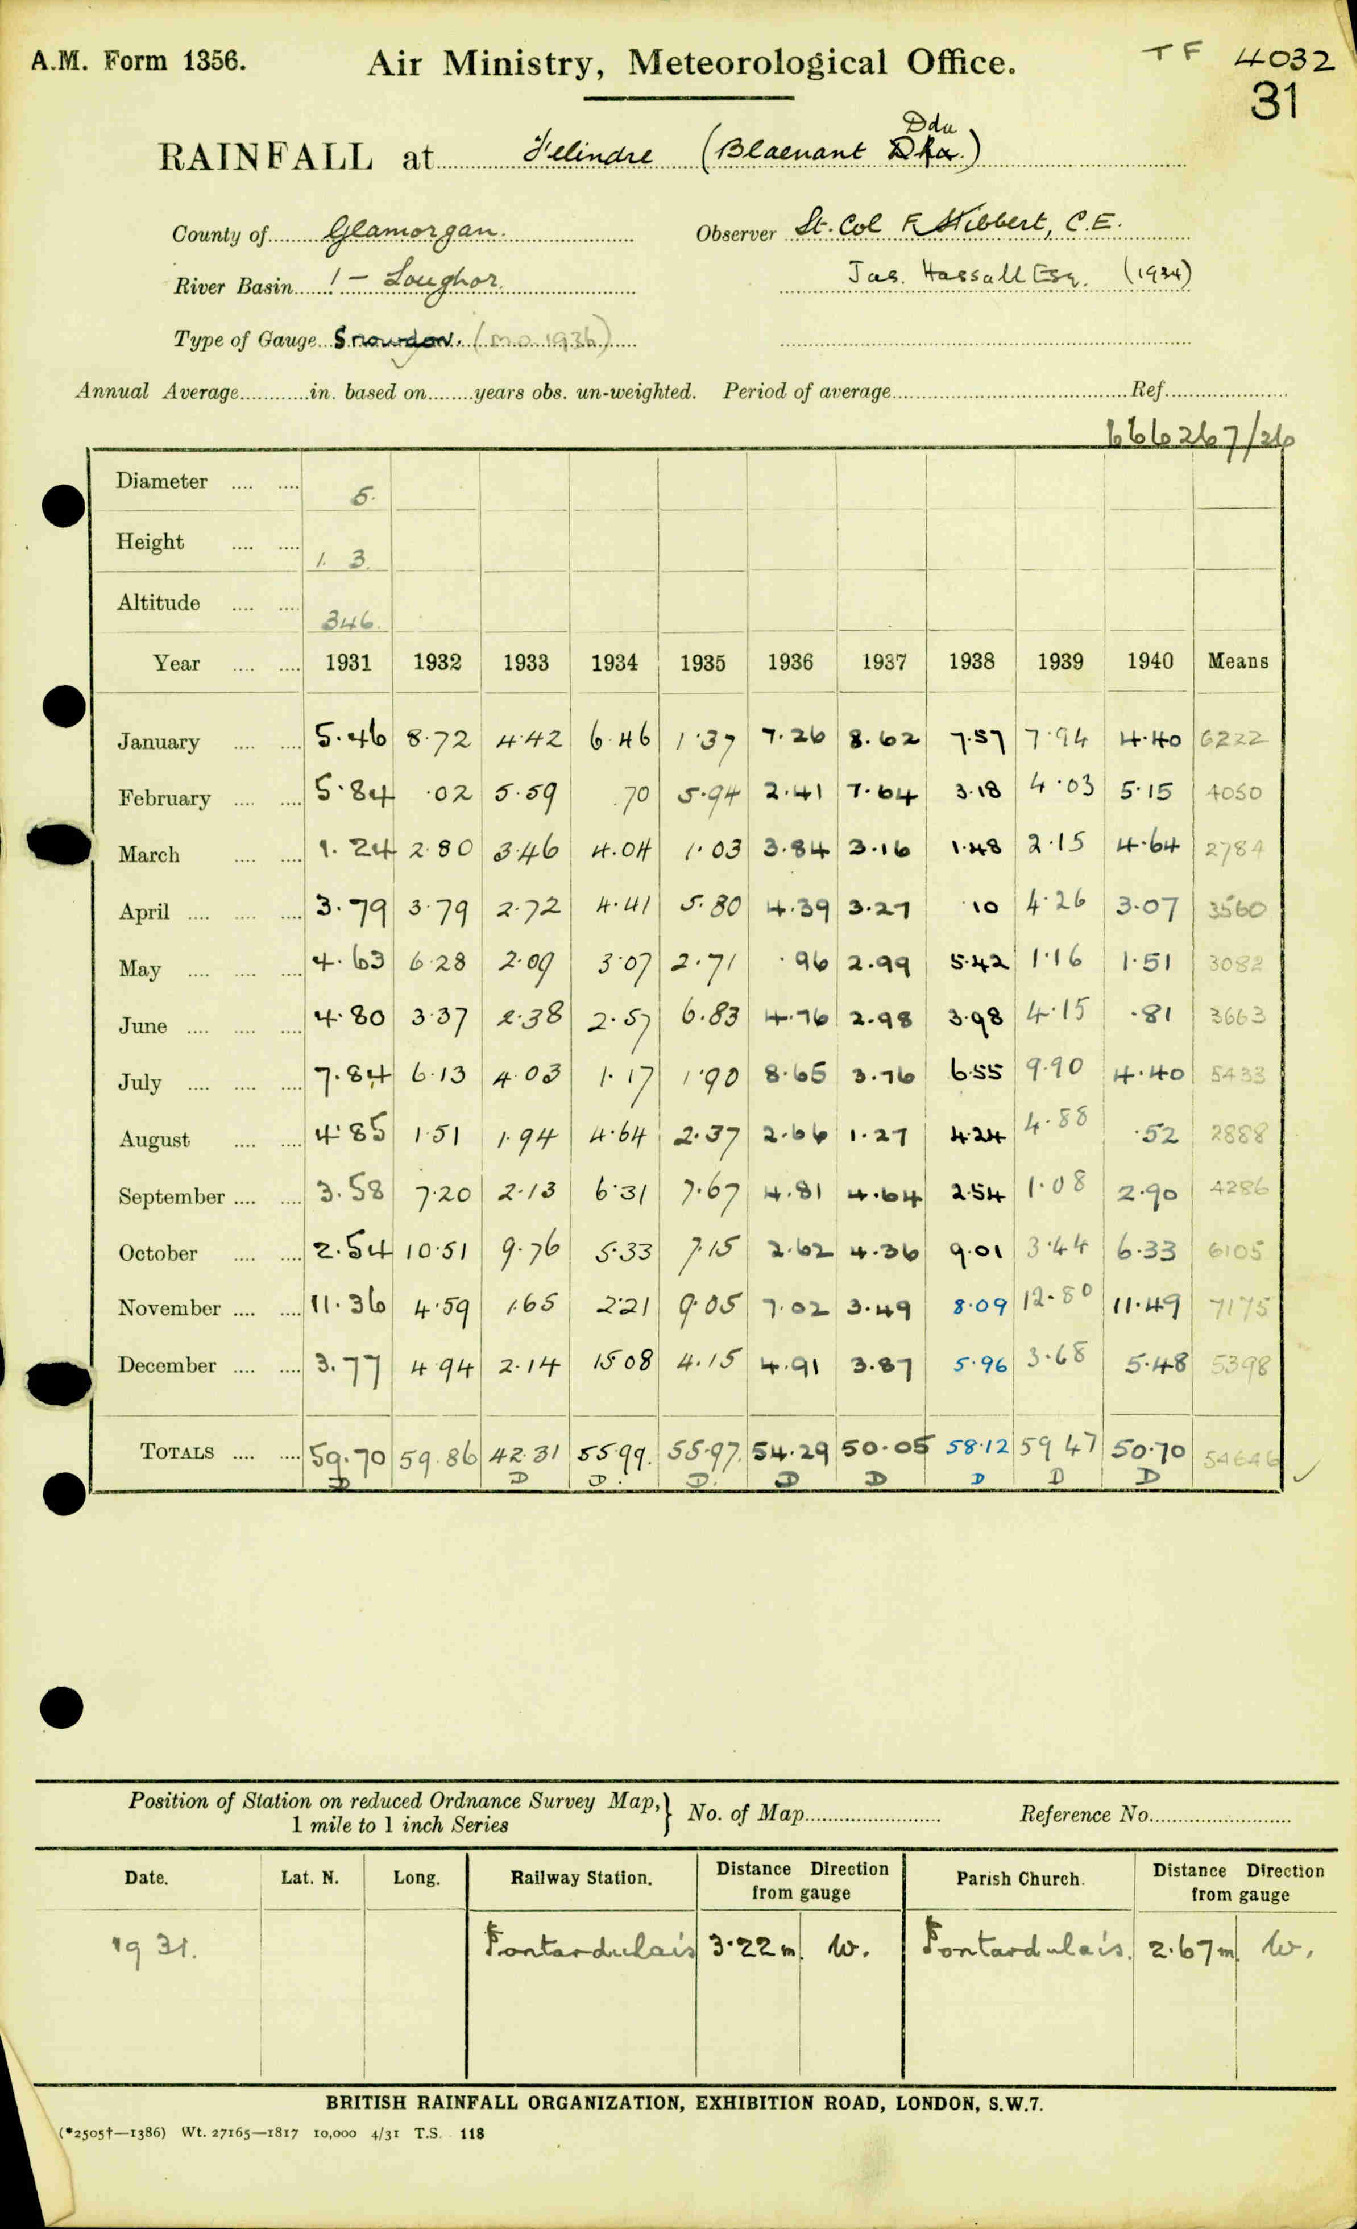 A.M. Form 1356. Air Ministry, Meteorological Office. TF 4032
31
RAINFALL at Felindre (Blaenant Ddu)
County of Glamorgan. Observer Lt. Col F. Hibbert, C.E.
River Basin 1 - Loughor. Jas. Hassall Esq. (1934)
Type of Gauge Snowdon. (M.O. 1936)
Annual Average in. based on years obs. un-weighted. Period of average Ref.
666267/26
Diameter 5.
Height 1. 3.
Altitude 346.
Year 1931 1932 1933 1934 1935 1936 1937 1938 1939 1940 Means
January 5.46 8.72 4.42 6.46 1.37 7.26 8.62 7.57 7.94 4.40 6222
February 5.84 .02 5.59 .70 5.94 2.41 7.64 3.18 4.03 5.15 4050
March 1.24 2.80 3.46 4.04 1.03 3.84 3.16 1.48 2.15 4.64 2784
April 3.79 3.79 2.72 4.41 5.80 4.39 3.27 .10 4.26 3.07 3560
May 4.63 6.28 2.09 3.07 2.71 .96 2.99 5.42 1.16 1.51 3082
June 4.80 3.37 2.38 2.57 6.83 4.76 2.98 3.98 4.15 .81 3663
July 7.84 6.13 4.03 1.17 1.90 8.65 3.76 6.55 9.90 4.40 5433
August 4.85 1.51 1.94 4.64 2.37 2.66 1.27 4.24 4.88 .52 2888
September 3.58 7.20 2.13 6.31 7.67 4.81 4.64 2.54 1.08 2.90 4286
October 2.54 10.51 9.76 5.33 7.15 2.62 4.36 9.01 3.44 6.33 6105
November 11.36 4.59 1.65 2.21 9.05 7.02 3.49 8.09 12.80 11.49 7175
December 3.77 4.94 2.14 15.08 4.15 4.91 3.87 5.96 3.68 5.48 5398
TOTALS 59.70 59.86 42.31 55.99. 55.97. 54.29 50.05 58.12 59.47 50.70 54646 ✓
D D D. D. D D D D D
Position of Station on reduced Ordnance Survey Map,} No. of Map Reference No.
1 mile to 1 inch Series
Date. Lat. N. Long. Railway Station. Distance Direction from gauge Parish Church. Distance Direction from gauge
1931. Pontardulais 3.22m. W. Pontardulais. 2.67m W.
BRITISH RAINFALL ORGANIZATION, EXHIBITION ROAD, LONDON, S.W.7.
(*2505†—1386) Wt. 27165—1817 10,000 4/31 T.S. 118